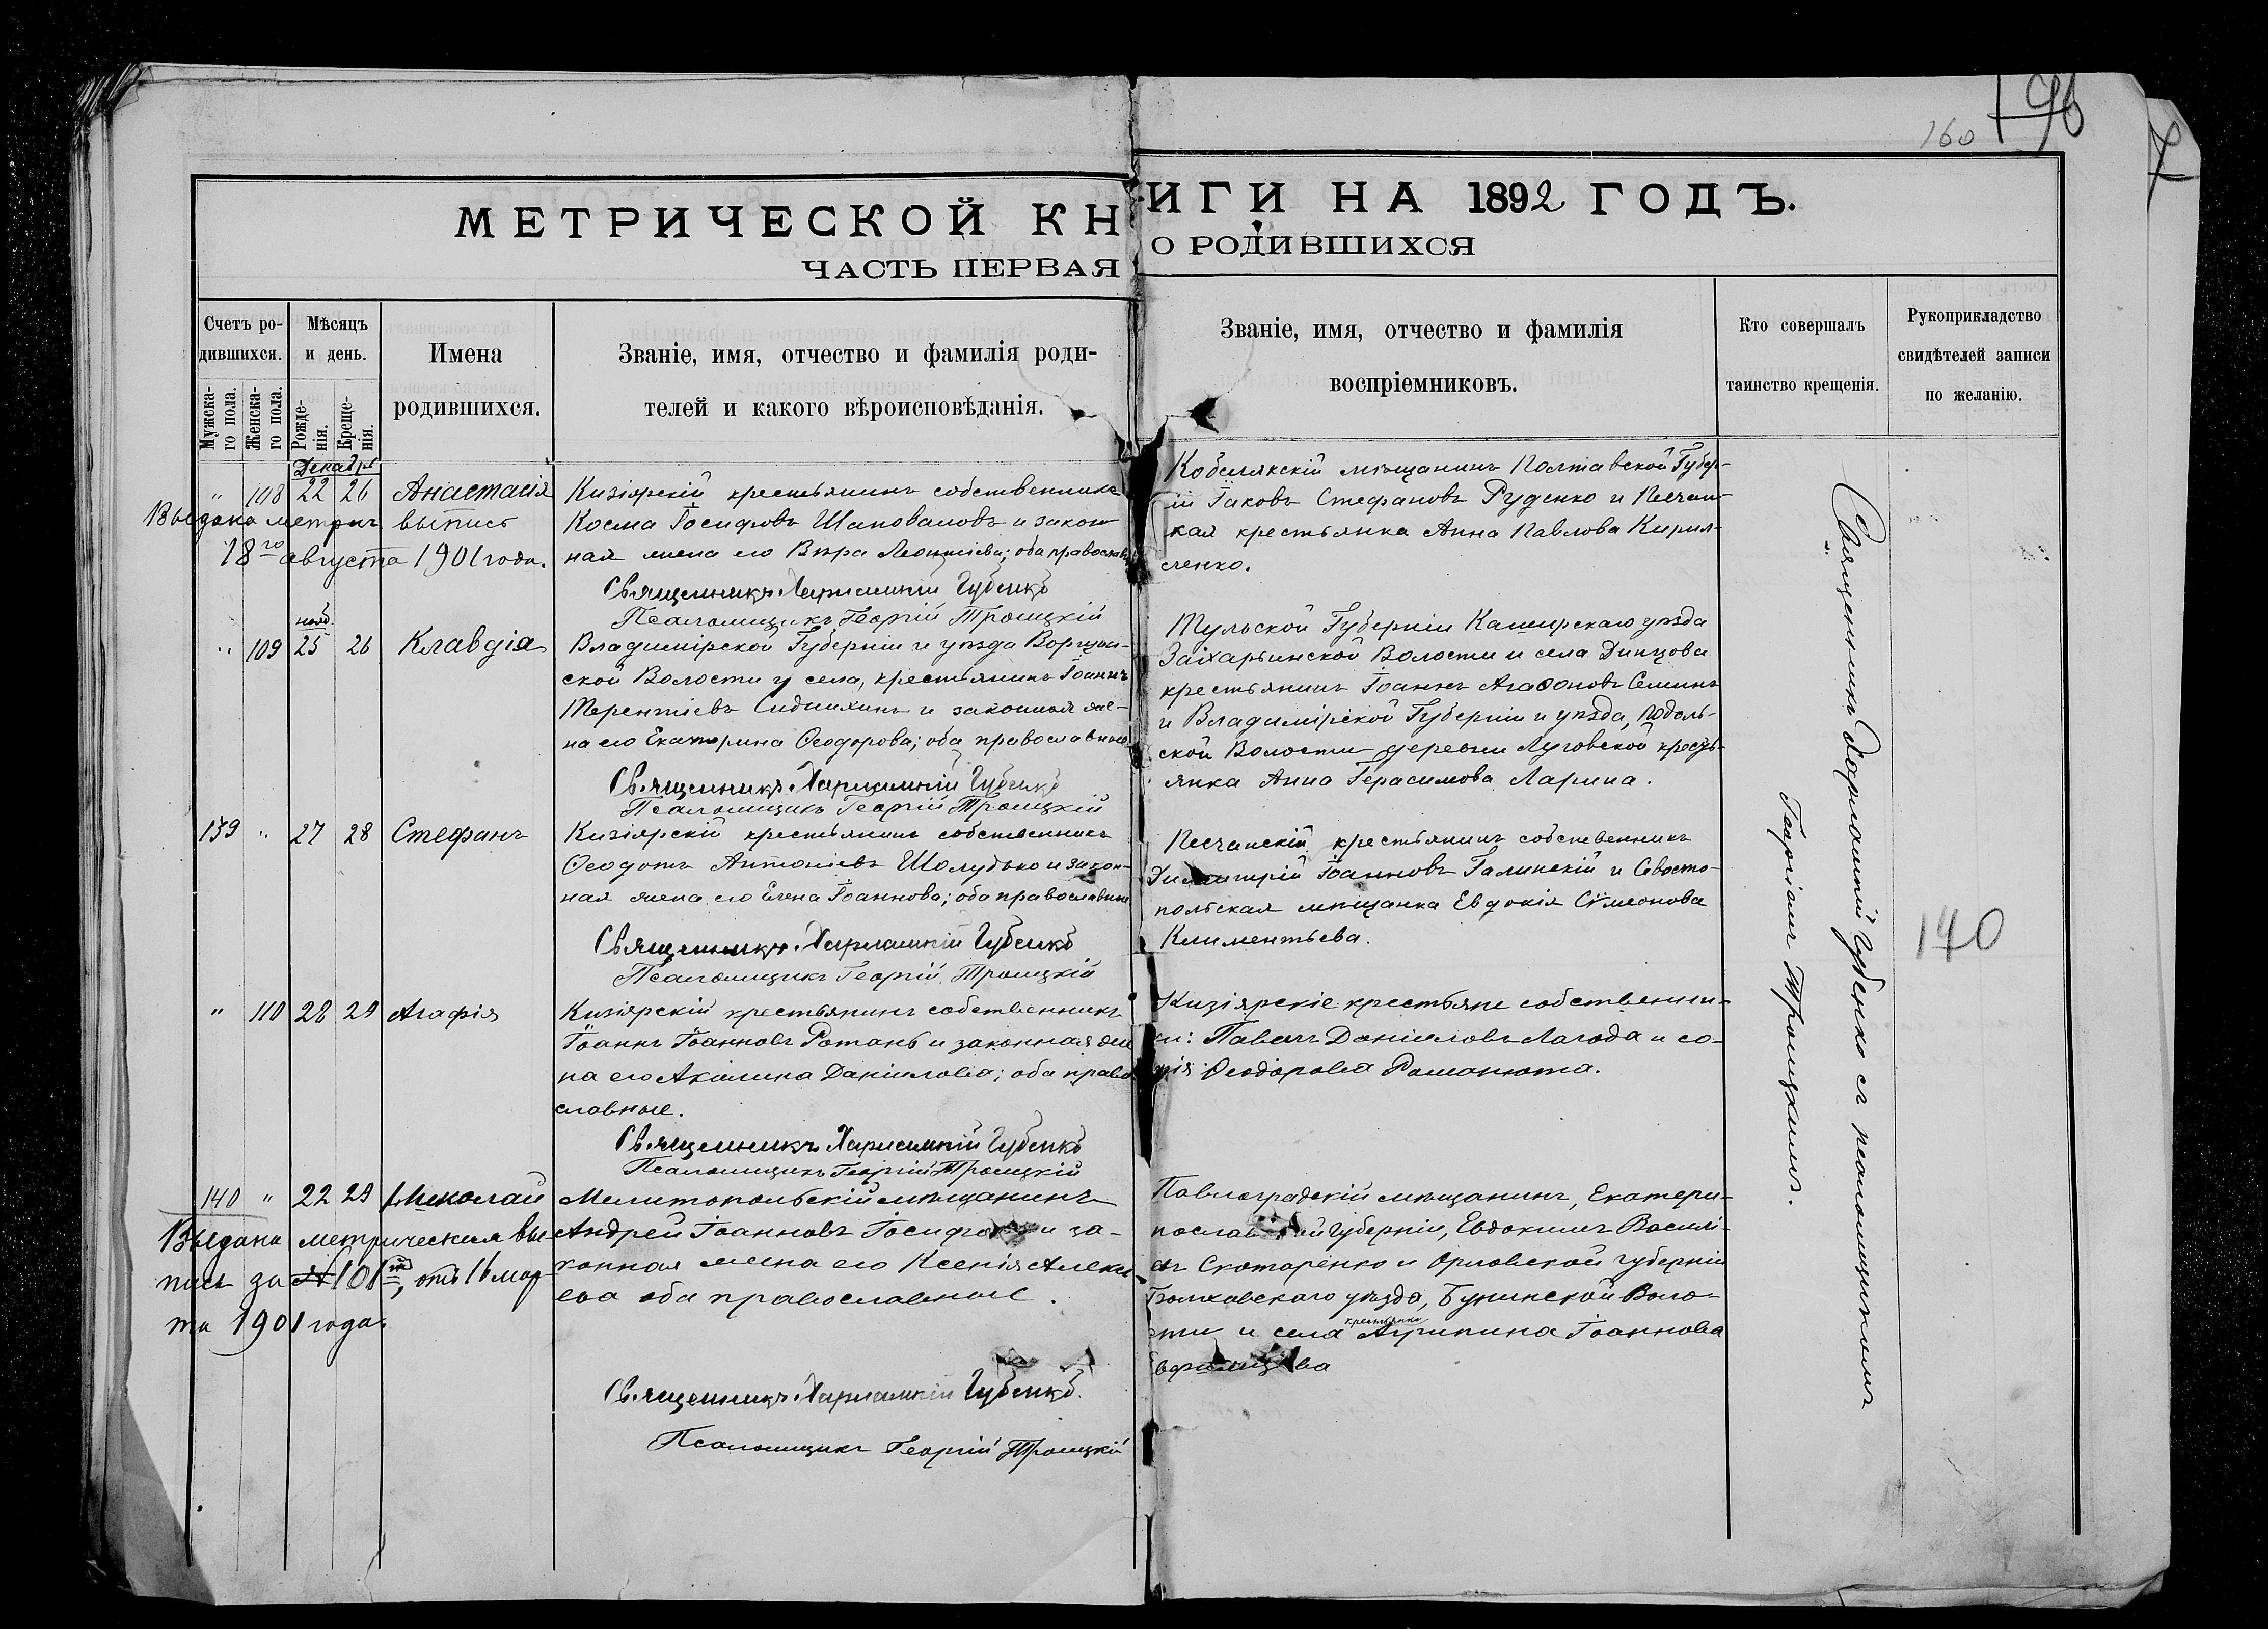 160
96
7
МЕТРИЧЕСКОЙ КНИГИ НА 1892 ГОДЪ.
ЧАСТЬ ПЕРВАЯ О РОДИВШИХСЯ
Счетъ ро-
дившихся.
Мужска-
го пола.
Женска-
го пола.
Мѣсяцъ
и день.
Рожде-
нія.
Креще-
нія.
Имена
родившихся.
Званіе, имя, отчество и фамилія роди-
телей и какого вѣроисповѣданія.
Званіе, имя, отчество и фамилія
воспріемниковъ.
Кто совершалъ
таинство крещенія.
Рукоприкладство
свидѣтелей записи
по желанію.
Декабрь
" 108 22 26 Анастасія
Выдана метрич. выпись
18го августа 1901 года.
Кизіярскій крестьянинъ собственникъ
Косма Іосифовъ Шаповаловъ и закон-
ная жена его Вѣра Леонтіева; оба православн
Священникъ Харлампій Губенко
Псаломщикъ Георгій Троицкій
Кобелякскій мѣщанинъ Полтавской Губер-
ніи Іаковъ Стефановъ Руденко и Песчан-
ская крестьянка Анна Павлова Кирил-
ленко.
нояб.
" 109 25 26 Клавдія
Владимірской Губерніи и уѣзда Ворщин-
ской Волости и села, крестьянинъ Іоаннъ
Терентіевъ и законная же-
на его Екатерина Ѳеодорова; оба православные
Священникъ Харлампій Губенко
Псаломщикъ Георгій Троицкій
Тульской Губерніи Каширскаго уѣзда
Захарьинской Волости и села
крестьянинъ Іоаннъ Агаѳоновъ Семинъ
и Владимірской Губерніи и уѣзда, Подоль-
ской Волости деревни Луговской кресть-
янка Анна Герасимова Ларина.
139 " 27 28 Стефанъ
Кизіярскій крестьянинъ собственникъ
Ѳеодотъ Антоніевъ Шолудько и закон-
ная жена его Елена Іоаннова; оба православные
Священникъ Харлампій Губенко
Псаломщикъ Георгій Троицкій
Песчанскій крестьянинъ собственникъ
Димитрій Іоанновъ Галинскій и Севасто-
польская мѣщанка Евдокія Сѷмеонова
Климентьева.
" 110 28 29 Агафія
Кизіярскій крестьянинъ собственникъ
Іоаннъ Іоанновъ Ротань и законная же
на его Акилина Даніилова; оба право
славные.
Священникъ Харлампій Губенко
Псаломщикъ Георгій Троицкій
Кизіярскіе крестьяне собственни-
ки: Павелъ Даніиловъ Лагода и Со-
фія Ѳеодорова Романюта.
140 " 22 29 Николай
Выдана метрическая вы-
пись за № 101м, отъ 16 мар-
та 1901 года.
Мелитопольскій мѣщанинъ
Андрей Іоанновъ и за-
конная жена его Ксенія Алекс
ева оба православные.
Священникъ Харлампій Губенко.
Псаломщикъ Георгій Троицкій
Павлоградскій мѣщанинъ, Екатери-
нославской Губерніи, Евдокимъ Василі-
евъ Скотаренко и Орловской губерніи
Болховскаго уѣзда, Бунинской Воло-
сти и села крестьянка Агрипина Іоаннова
Священникъ Харлампій Губенко съ псаломщикомъ
Георгіемъ Троицкимъ.
140